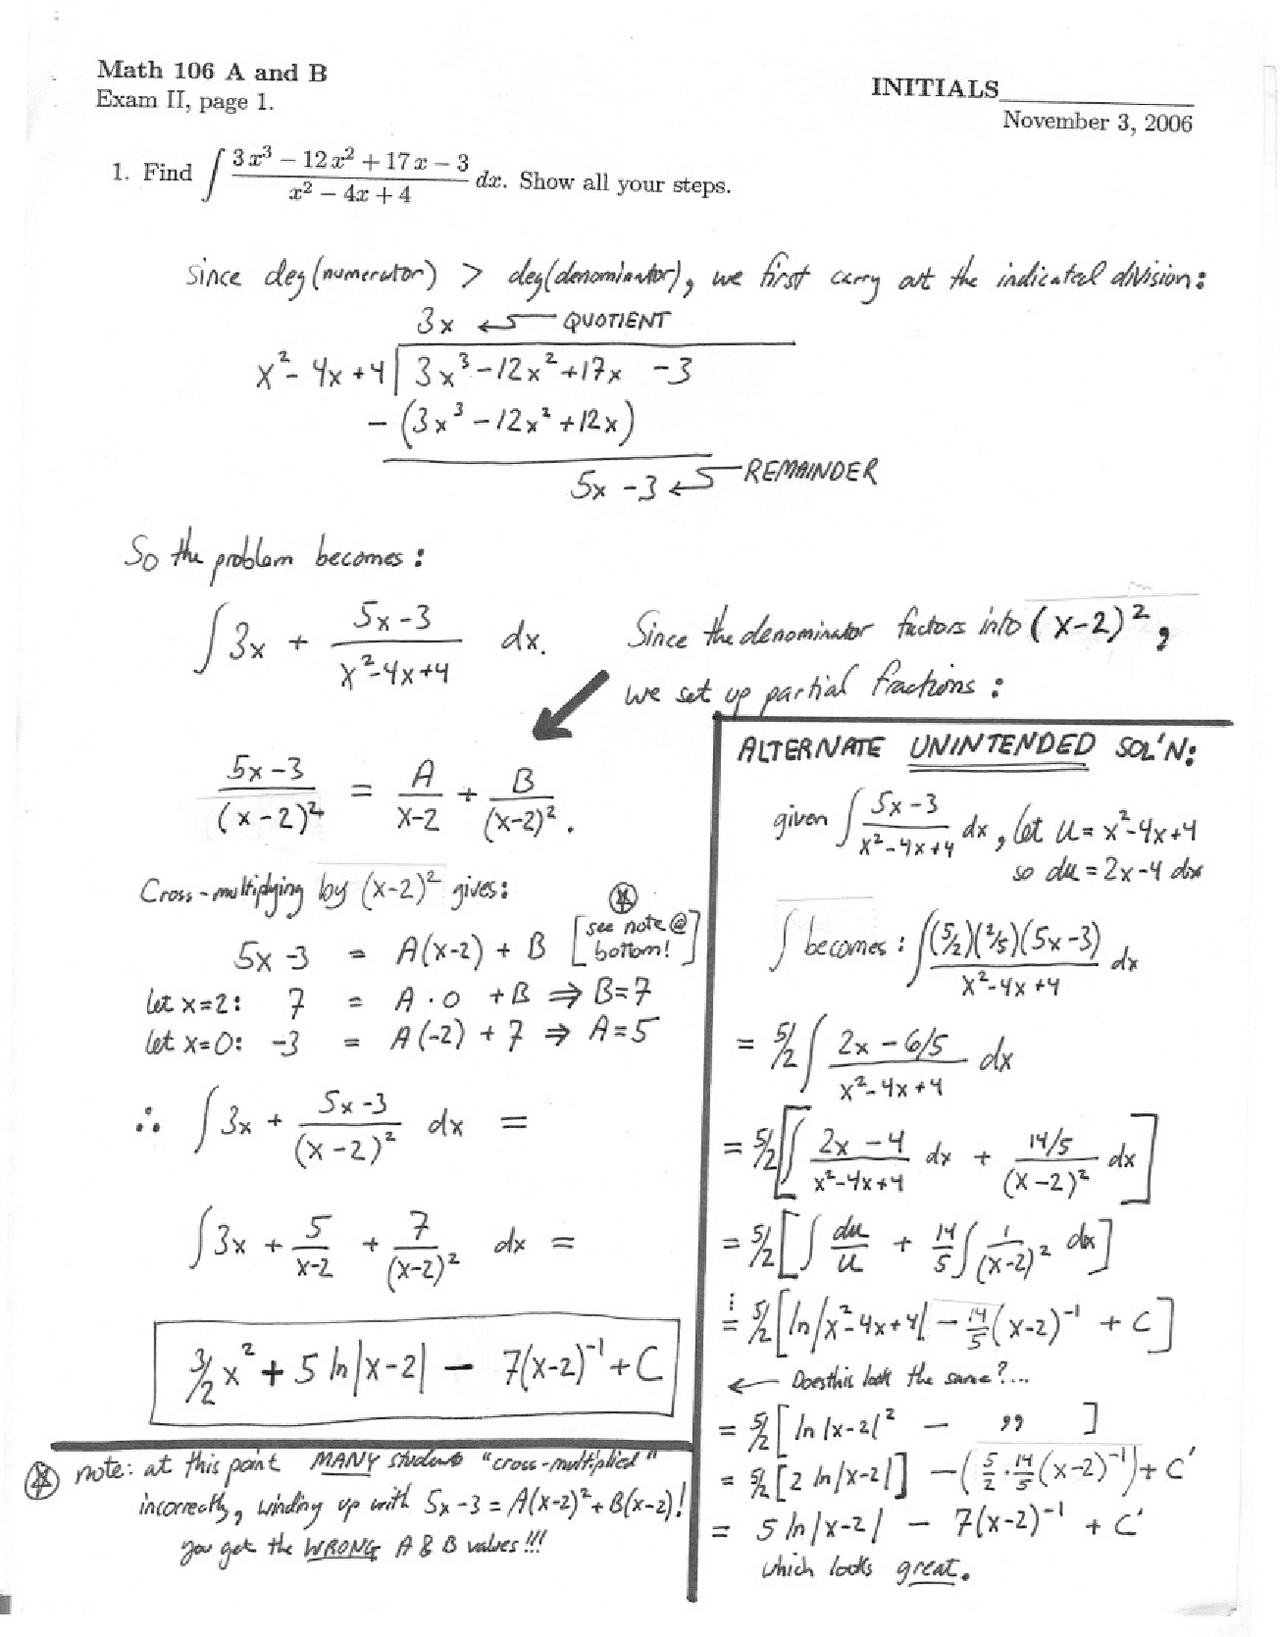 Math 106 A and B
Exam II, page 1.
INITIALS
November 3, 2006
1. Find ∫ (3x³ − 12x² + 17x − 3)/(x² − 4x + 4) dx. Show all your steps.
Since deg(numerator) > deg(denominator), we first carry out the indicated division:
3x ← QUOTIENT
x² - 4x + 4 | 3x³ - 12x² + 17x - 3
- (3x³ - 12x² + 12x)
5x - 3 ← REMAINDER
So the problem becomes:
∫ 3x + (5x-3)/(x²-4x+4) dx.
Since the denominator factors into (x-2)²,
we set up partial fractions:
(5x-3)/(x-2)² = A/(x-2) + B/(x-2)².
Cross-multiplying by (x-2)² gives:
5x - 3 = A(x-2) + B [see note @ bottom!]
let x=2: 7 = A·0 + B ⇒ B=7
let x=0: -3 = A(-2) + 7 ⇒ A=5
∴ ∫ 3x + (5x-3)/(x-2)² dx =
∫ 3x + 5/(x-2) + 7/(x-2)² dx =
3/2 x² + 5 ln|x-2| - 7(x-2)⁻¹ + C
note: at this point MANY students "cross-multiplied"
incorrectly, winding up with 5x-3 = A(x-2)² + B(x-2)!
you get the WRONG A & B values!!!
ALTERNATE UNINTENDED SOL'N:
given ∫ (5x-3)/(x²-4x+4) dx, let u = x²-4x+4
so du = 2x-4 dx
∫ becomes: ∫ (5/2)(2/5)(5x-3)/(x²-4x+4) dx
= 5/2 ∫ (2x - 6/5)/(x²-4x+4) dx
= 5/2 [∫ (2x-4)/(x²-4x+4) dx + (14/5)/(x-2)² dx]
= 5/2 [∫ du/u + 14/5 ∫ 1/(x-2)² dx]
⋮ = 5/2 [ln|x²-4x+4| - 14/5 (x-2)⁻¹ + C]
← Does this look the same?...
= 5/2 [ln|x-2|² - " ]
= 5/2 [2 ln|x-2|] - (5/2 · 14/5 (x-2)⁻¹) + C'
= 5 ln|x-2| - 7(x-2)⁻¹ + C'
which looks great.